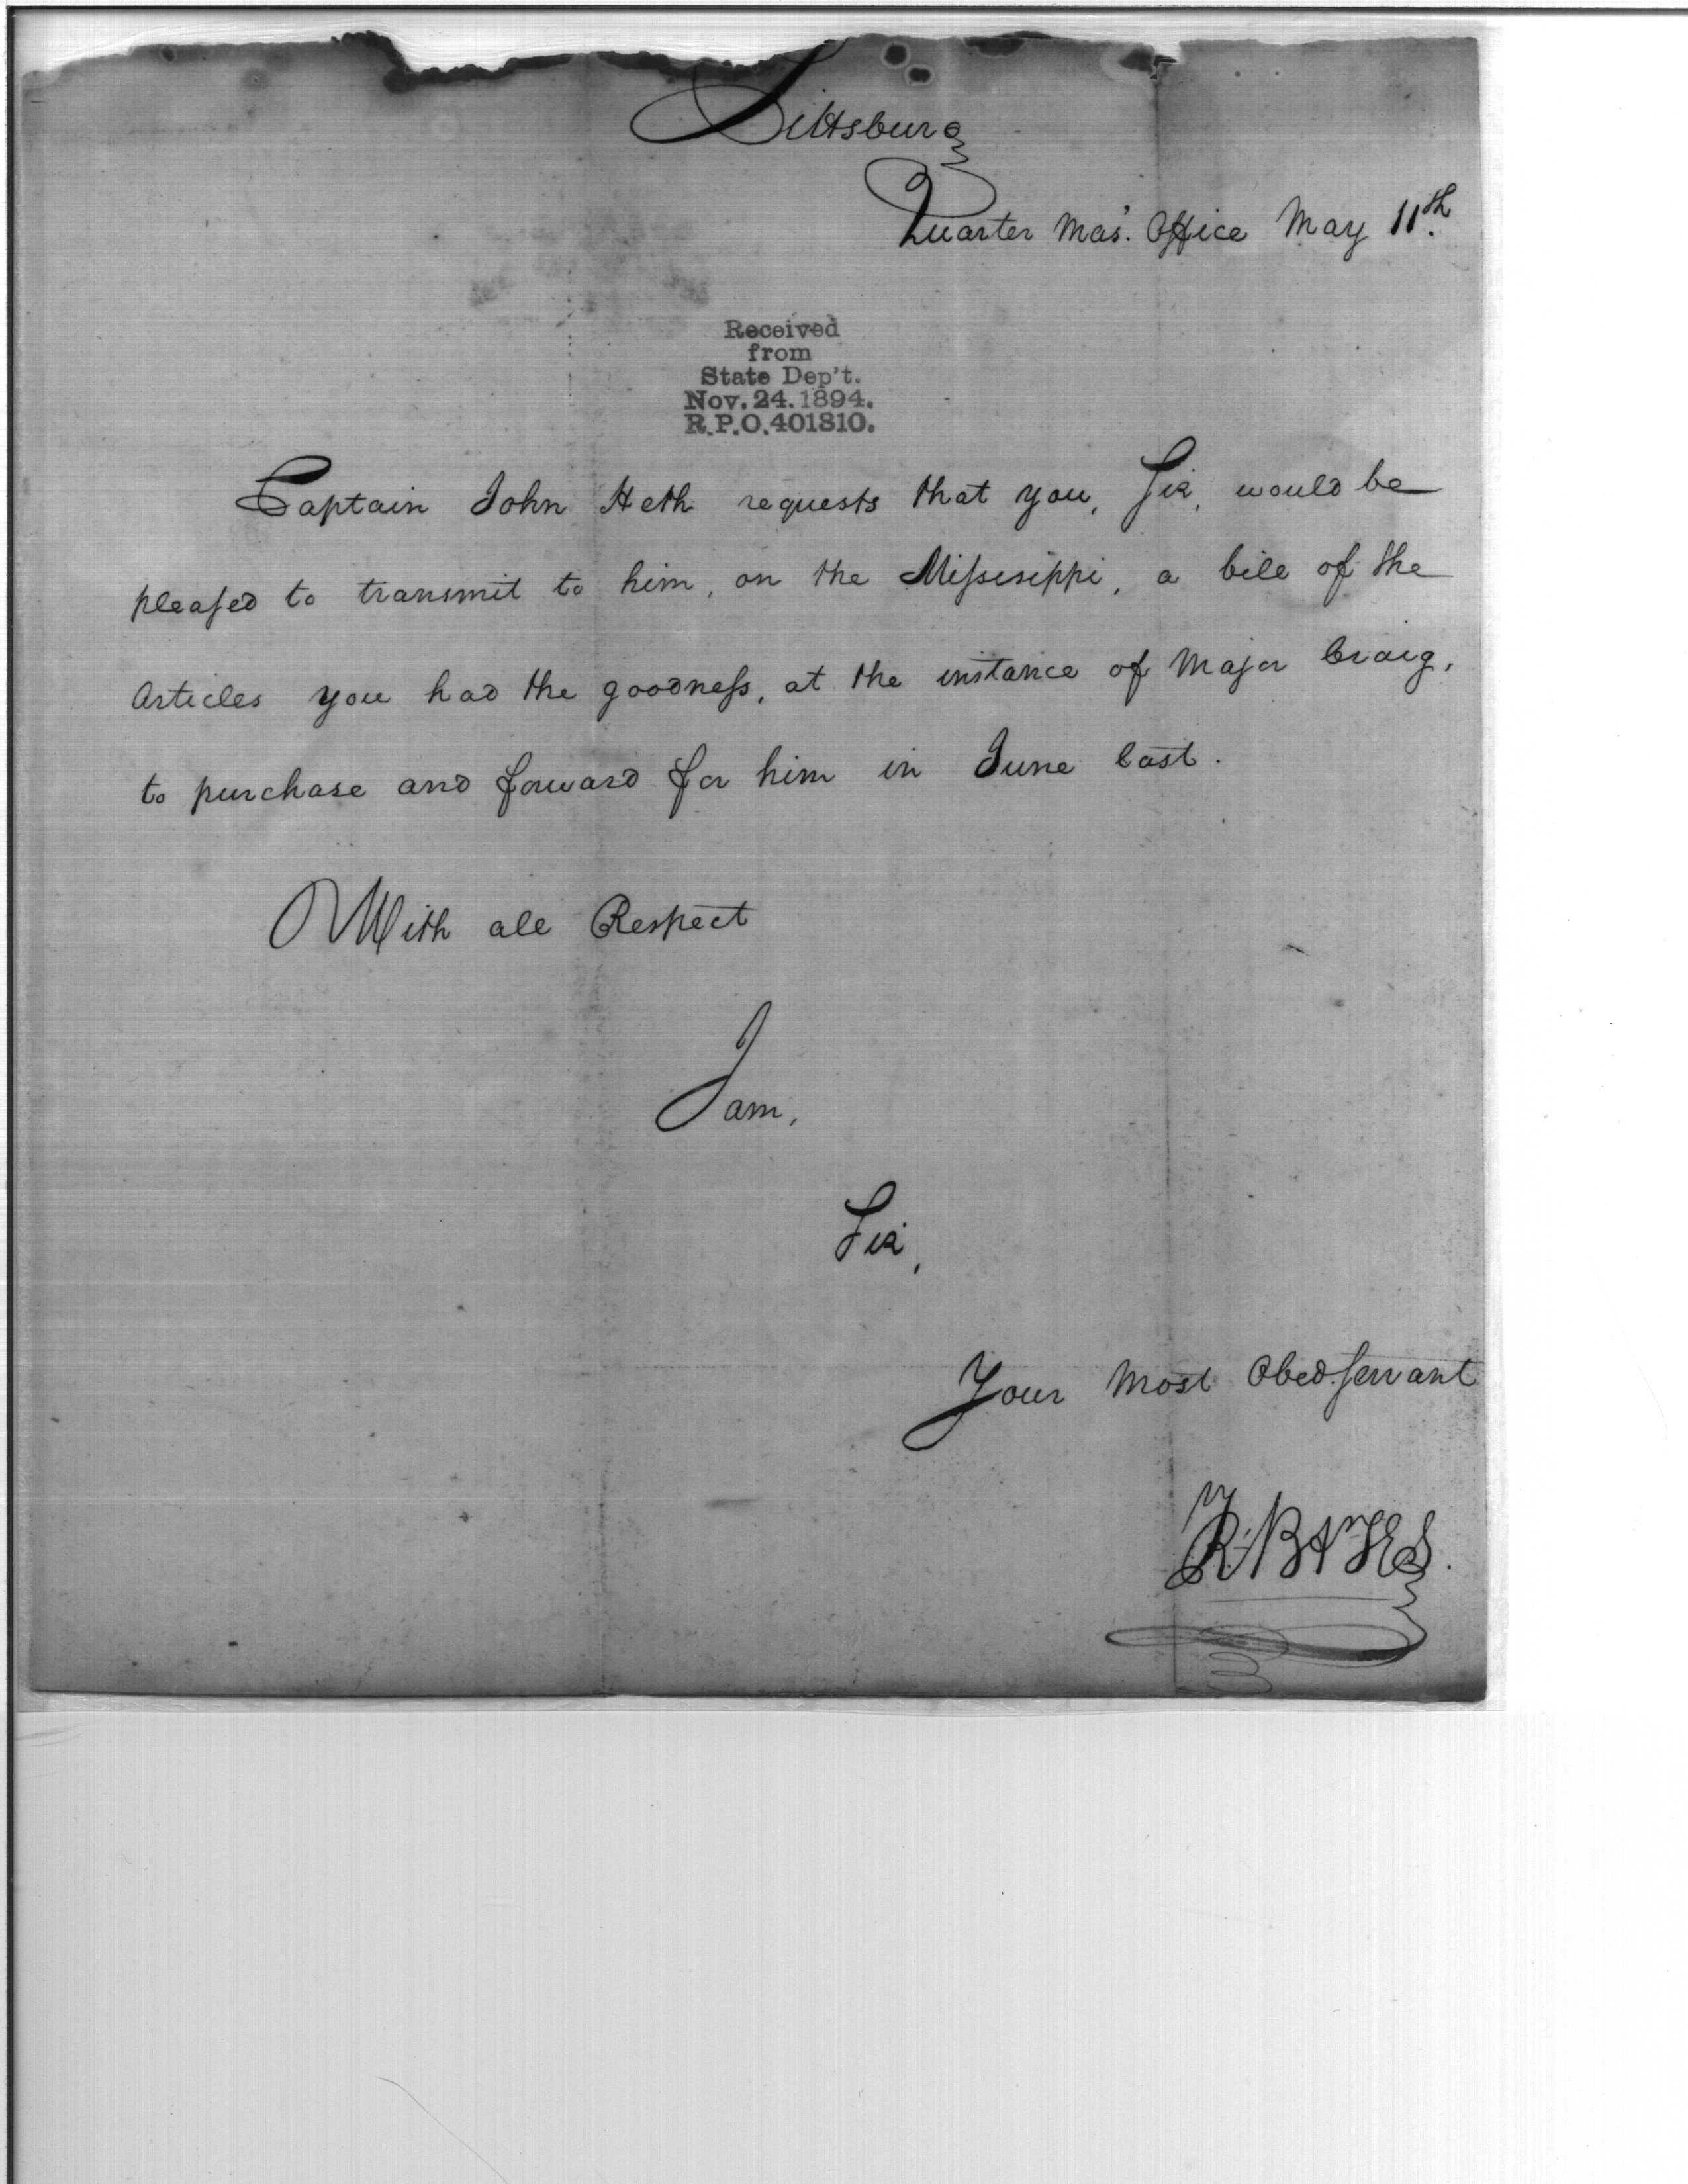 Pittsburg
Quarter Mas'. Office May 11th.
Received
from
State Dep't.
Nov. 24. 1894.
R.P.O. 401810.
Captain John Heth requests that you, Sir, would be
pleaſed to transmit to him, on the Miſsisippi, a bill of the
Articles you had the goodneſs, at the instance of Major Craig,
to purchase and forward for him in June last.
With all Respect
I am,
Sir,
Your Most Obed. ſervant
R. BATES.